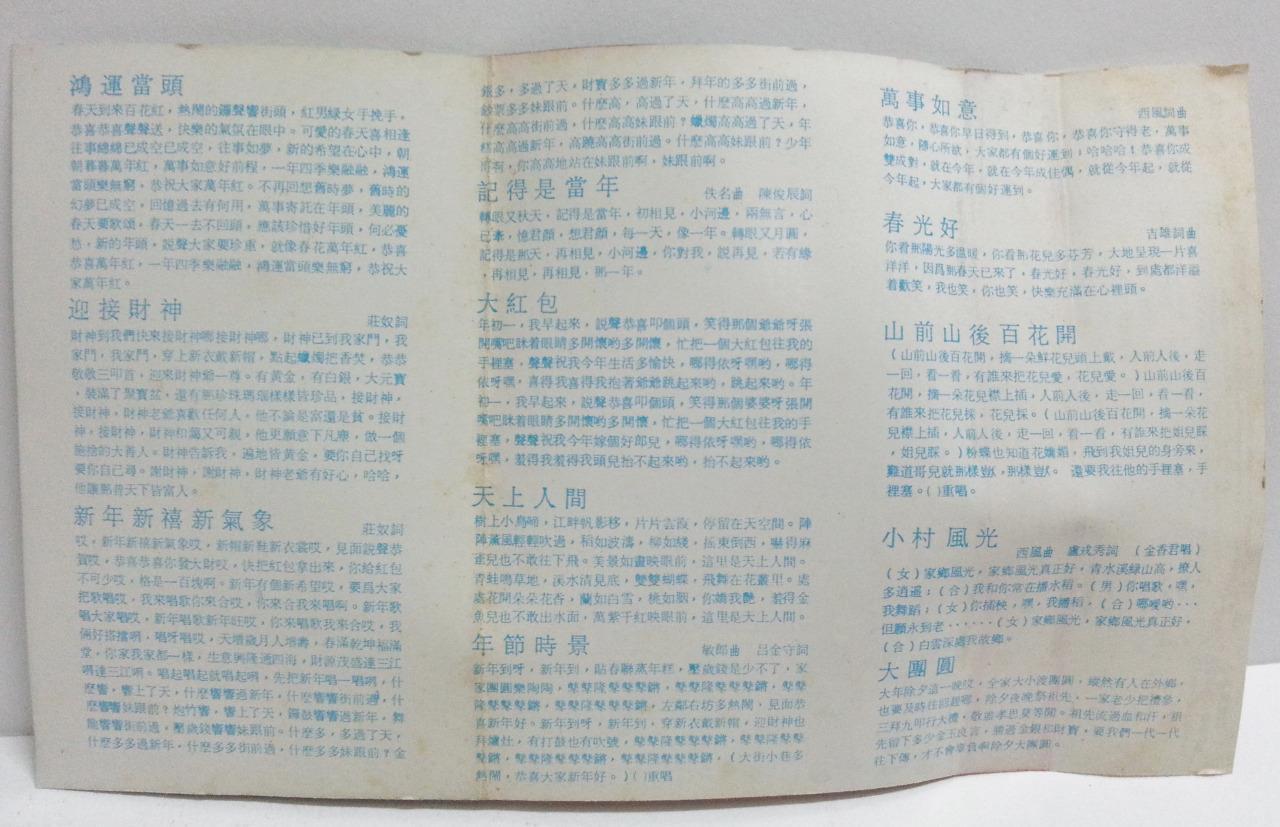 鴻運當頭
春天到來百花紅，熱鬧的鑼聲響街頭，紅男綠女手挽手，
恭喜恭喜聲聲送，快樂的氣氛在眼中。可愛的春天喜相逢
往事總總已成空已成空，往事如夢，新的希望在心中，朝
朝暮暮萬年紅，萬事如意好前程，一年四季樂融融，鴻運
當頭樂無窮，恭祝大家萬年紅。不再回想舊時夢，舊時的
幻夢已成空，回憶過去有何用，萬事寄託在年頭，美麗的
春天要歌頌，春天一去不回頭，應該珍惜好年頭，何必憂
愁，新的年頭，說聲大家要珍重，就像春花萬年紅，恭喜
恭喜萬年紅，一年四季樂融融，鴻運當頭樂無窮，恭祝大
家萬年紅。
迎接財神
莊奴詞
財神到我們快來接財神啷接財神啷，財神已到我家門，我
家門，我家門，穿上新衣戴新帽，點起蠟燭把香焚，恭恭
敬敬三叩首，迎來財神爺一尊。有黃金，有白銀，大元寶
，裝滿了聚寶盆，還有那珍珠瑪瑙樣樣皆珍品，接財神，
接財神，財神老爺喜歡任何人，他不論是富還是貧。接財
神，接財神，財神和藹又可親，他更願意下凡塵，做一個
施捨的大善人。財神告訴我，遍地皆黃金，要你自己找呀
要你自己尋。謝財神，謝財神，財神老爺有好心，哈哈，
他讓那普天下皆富人。
新年新禧新氣象
莊奴詞
哎，新年新禧新氣象哎，新帽新鞋新衣裳哎，見面說聲恭
賀哎，恭喜恭喜你發大財哎，快把紅包拿出來，你給紅包
不可少哎，格是一百塊啊。新年有個新希望哎，要爲大家
把歌唱哎，我來唱歌你來合哎，你來合我來唱啊。新年歌
唱大家唱哎，新年唱歌新年旺哎，你來唱歌我來合哎，我
倆好搭擋啊，唱呀唱哎，天增歲月人增壽，春滿乾坤福滿
堂，你家我家都一樣，生意興隆通四海，財源茂盛達三江
唱達三江啊。唱起唱起就唱起啊，先把新年唱一唱啊，什
麼響，響上了天，什麼響響過新年，什麼響響街前過，什
麼響響妹跟前？炮竹響，響上了天，鑼鼓響響過新年，舞
龍響響街前過，壓歲錢響響妹跟前。什麼多，多過了天，
什麼多多過新年，什麼多多街前過，什麼多多妹跟前？金
銀多，多過了天，財寶多多過新年，拜年的多多街前過，
鈔票多多妹跟前。什麼高，高過了天，什麼高高過新年，
什麼高高街前過，什麼高高妹跟前？蠟燭高高過了天，年
糕高高過新年，高蹺高高街前過。什麼高高妹跟前？少年
哥啊，你高高地站在妹跟前啊，妹跟前啊。
記得是當年
佚名曲　陳俊辰詞
轉眼又秋天，記得是當年，初相見，小河邊，兩無言，心
已牽，憶君顏，想君顏，每一天，像一年。轉眼又月圓，
記得是那天，再相見，小河邊，你對我，說再見，若有緣
，再相見，再相見，那一年。
大紅包
年初一，我早起來，說聲恭喜叩個頭，笑得那個爺爺呀張
開嘴吧眯着眼睛多開懷喲多開懷，忙把一個大紅包往我的
手裡塞，聲聲祝我今年生活多愉快，啷得依呀嘿喲，啷得
依呀嘿，喜得我喜得我抱着爺爺跳起來喲，跳起來喲。年
初一，我早起來，說聲恭喜叩個頭，笑得那個婆婆呀張開
嘴吧眯着眼睛多開懷喲多開懷，忙把一個大紅包往我的手
裡塞，聲聲祝我今年嫁個好郎兒，啷得依呀嘿喲，啷得依
呀嘿，羞得我羞得我頭兒抬不起來喲，抬不起來喲。
天上人間
樹上小鳥啼，江畔帆影移，片片雲霞，停留在天空間。陣
陣薰風輕輕吹過，稻如波濤，柳如綫，搖東倒西，嚇得麻
雀兒也不敢往下飛。美景如畫映眼前，這里是天上人間。
青蛙鳴草地，溪水清見底，雙雙蝴蝶，飛舞在花叢里。處
處花開朵朵花香，蘭如白雪，桃如胭，你嬌我艷，羞得金
魚兒也不敢出水面，萬紫千紅映眼前，這里是天上人間。
年節時景
敏郎曲　呂金守詞
新年到呀，新年到，貼春聯蒸年糕，壓歲錢是少不了，家
家團圓樂陶陶，鼕鼕隆鼕鼕鼕鏘，鼕鼕隆鼕鼕鏘，鼕鼕
隆鼕鼕隆鼕鼕隆鼕鼕鏘，左鄰右坊多熱鬧，見面恭
喜新年好。新年到呀，新年到，穿新衣戴新帽，迎財神也
拜爐灶，有打鼓也有吹號，鼕鼕隆鼕鼕鼕鏘，鼕鼕隆鼕鼕
鼕鏘，鼕鼕隆鼕鼕隆鼕鼕隆鼕鼕鏘，（大街小巷多
熱鬧，恭喜大家新年好。）（）重唱
萬事如意
西風詞曲
恭喜你，恭喜你早日得到，恭喜你，恭喜你守得老，萬事
如意，隨心所欲，大家都有個好運到；哈哈哈！恭喜你成
雙成對，就在今年，就在今年成佳偶，就從今年起，就從
今年起，大家都有個好運到。
春光好
吉雄詞曲
你看那陽光多溫暖，你看那花兒多芬芳，大地呈現一片喜
洋洋，因爲那春天已來了，春光好，春光好，到處都洋溢
着歡笑，我也笑，你也笑，快樂充滿在心裡頭。
山前山後百花開
（山前山後百花開，摘一朵鮮花兒頭上戴，人前人後，走
一回，看一看，有誰來把花兒愛，花兒愛。）山前山後百
花開，摘一朵花兒襟上插，人前人後，走一回，看一看，
有誰來把花兒採，花兒採。（山前山後百花開，摘一朵花
兒襟上插，人前人後，走一回，看一看，有誰來把姐兒睬
，姐兒睬。）粉蝶也知道花嬌媚，飛到我姐兒的身旁來，
難道哥兒就那樣獃，那樣獃。還要我往他的手裡塞，手
裡塞。（）重唱。
小村風光
西風曲　盧戎秀詞　（金香君唱）
（女）家鄉風光，家鄉風光真正好，青水溪綠山高，撩人
多逍遙；（合）我和你常在播水稻。（男）你唱歌，嘿，
我舞蹈；（女）你插秧，嘿，我播稻，（合）啷噯喲･･･
但願永到老･･････（女）家鄉風光，家鄉風光真正好，
（合）白雲深處我故鄉。
大團圓
大年除夕這一晚哎，全家大小渡團圓，縱然有人在外鄉，
也要及時往回趕啷，除夕夜晚祭祖先，一家老少把禮參，
三拜九叩行大禮，敬重孝思莫等閒。祖先流過血和汗，祖
先留下多少金玉良言，勝過金銀和財寶，要我們一代一代
往下傳，才不會辜負啊除夕大團圓。